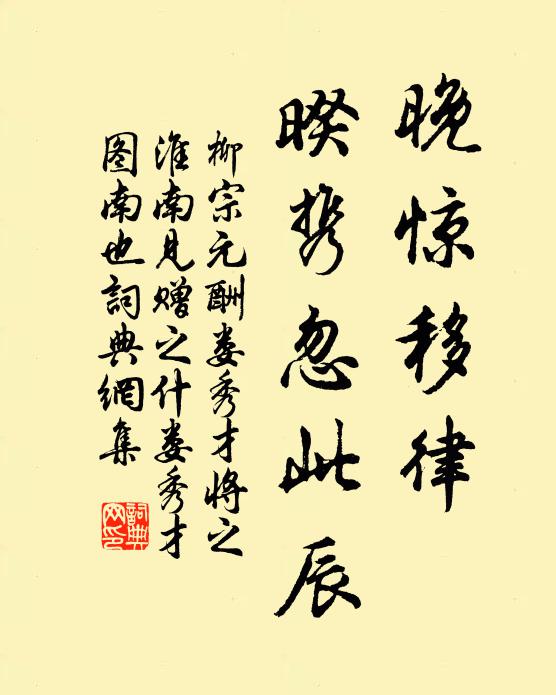 晚惊移律
暌携忽此辰
柳宗元酬娄秀才将之
淮南见赠之什娄秀才
图南也词典網集
詞典
网印